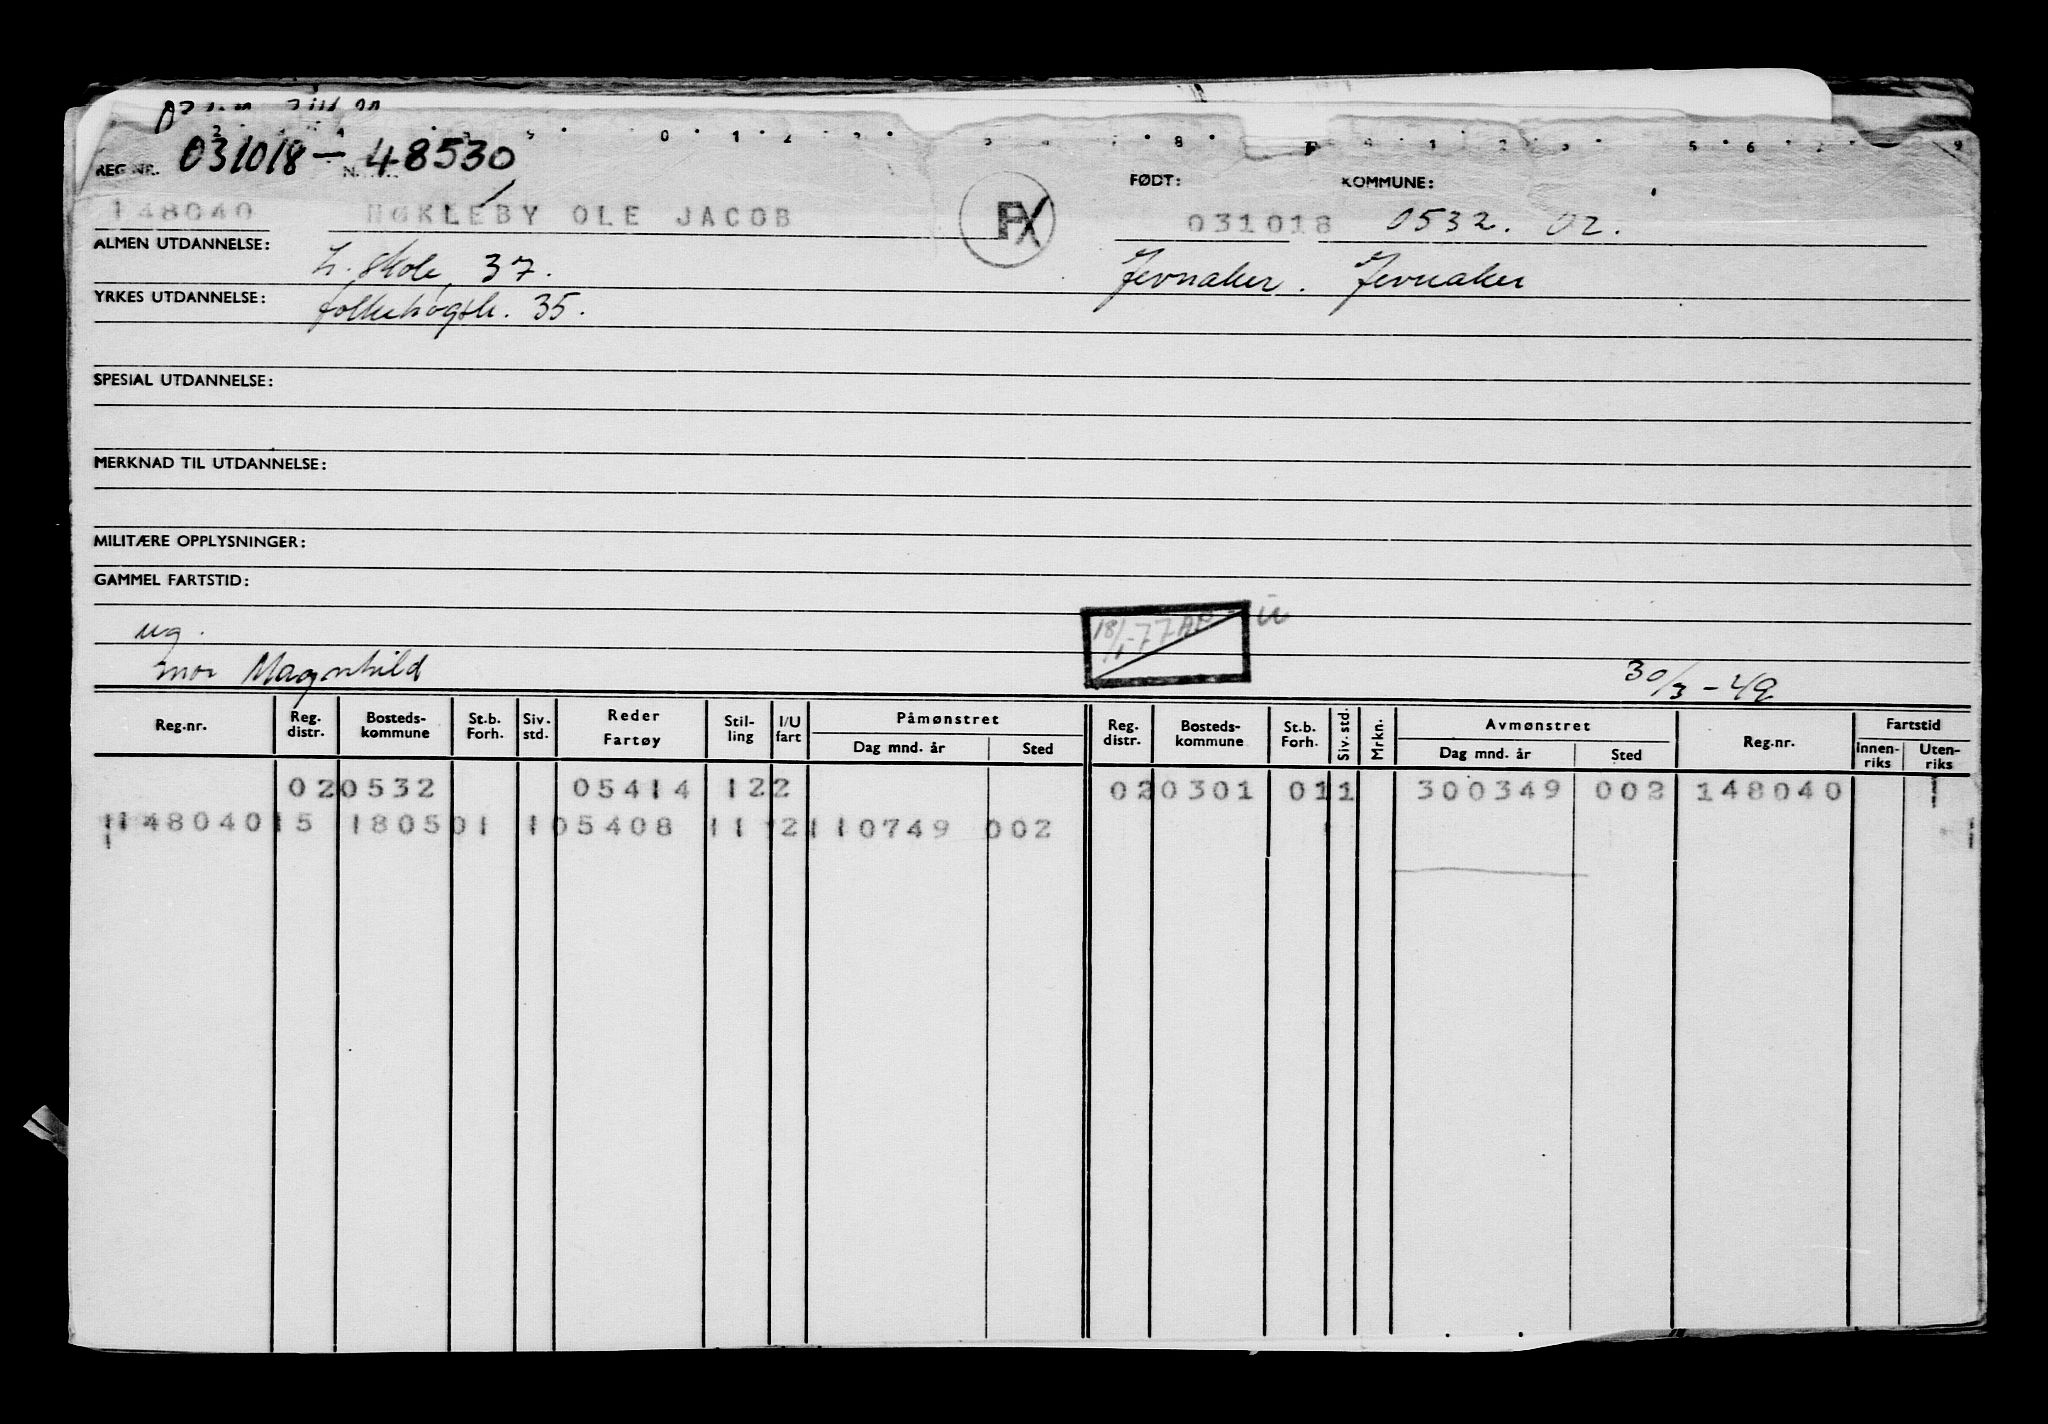 REG. NR. 031018 - 48530
FØDT: KOMMUNE:
148040 HØKLEBY OLE JACOB 031018 0532. 02.
ALMEN UTDANNELSE: skole 37. Jevnaker. Jevnaker
YRKES UTDANNELSE: folkehøgsk. 35.
SPESIAL UTDANNELSE:
MERKNAD TIL UTDANNELSE:
MILITÆRE OPPLYSNINGER:
GAMMEL FARTSTID:
ug. 18/1-77
mor Magnhild 30/3-49
Reg.nr. Reg. distr. Bosteds-kommune St.b. Forh. Siv. std. Reder Fartøy Stil-ling I/U fart Påmønstret Dag mnd. år Sted Reg. distr. Bosteds-kommune St.b. Forh. Siv. std. Mrkn. Avmønstret Dag mnd. år Sted Reg.nr. Fartstid Innen-riks Uten-riks
020532 05414 122 020301 011 300349 002 148040
148040 15 180501 105408 11 2110749 002